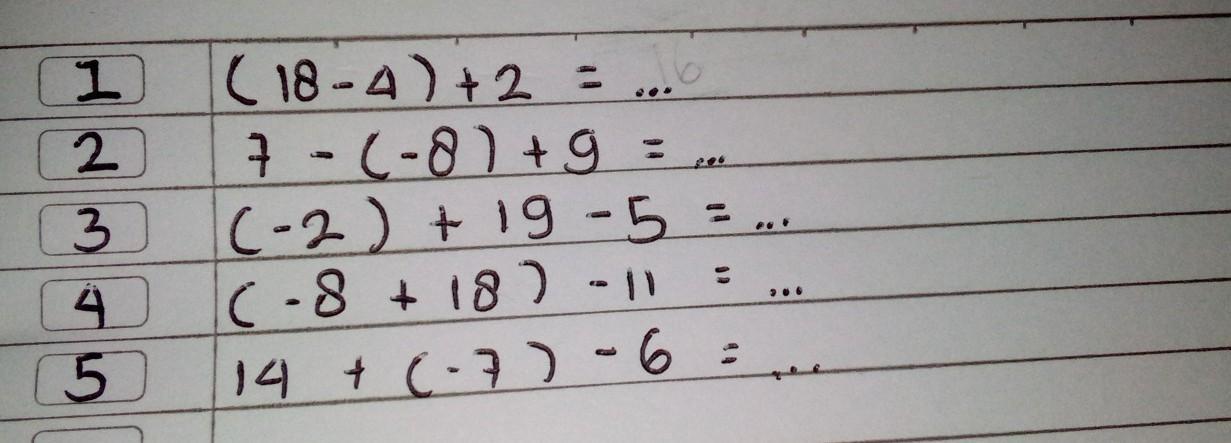 1 (18-4)+2 = ... 16
2 7 - (-8) + 9 = ...
3 (-2) + 19 - 5 = ...
4 (-8 + 18) - 11 = ...
5 14 + (-7) - 6 = ...